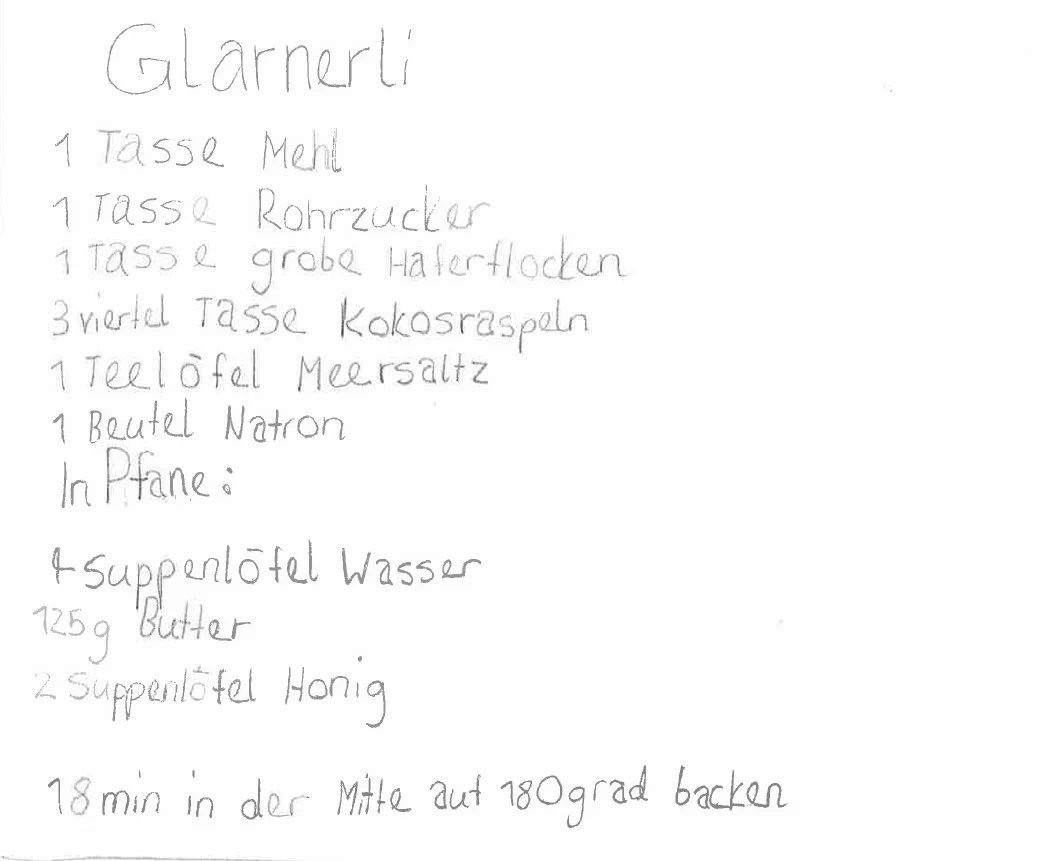 Glarnerli
1 Tasse Mehl
1 Tasse Rohrzucker
1 Tasse grobe Haferflocken
3 viertel Tasse Kokosraspeln
1 Teelöfel Meersaltz
1 Beutel Natron
In Pfane:
4 Suppenlöfel Wasser
125g Butter
2 Suppenlöfel Honig
18 min in der Mitte auf 180 grad backen